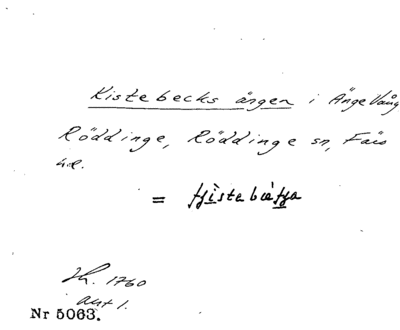 Kistebecks ången i Ängevång
Röddinge, Röddinge sn, Färs
hd.
= tjistebætja
Lh. 1760
akt 1.
Nr 5063.